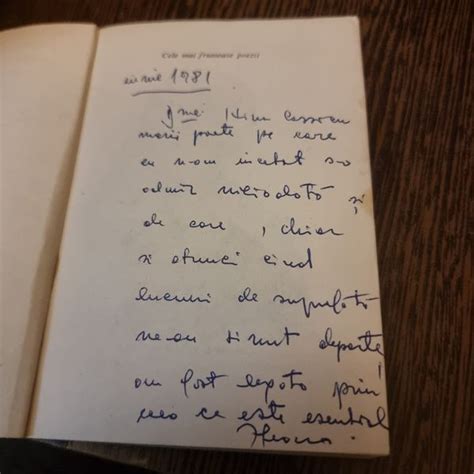 Cele mai frumoase poezii
iunie 1981
Nina Cassian
marii poete pe care
eu n-am incetat s-o
admir niciodată și
de care, chiar
și atunci cind
lucruri de suprafață
ne-au ținut departe,
am fost legată prin
ceea ce este esențial